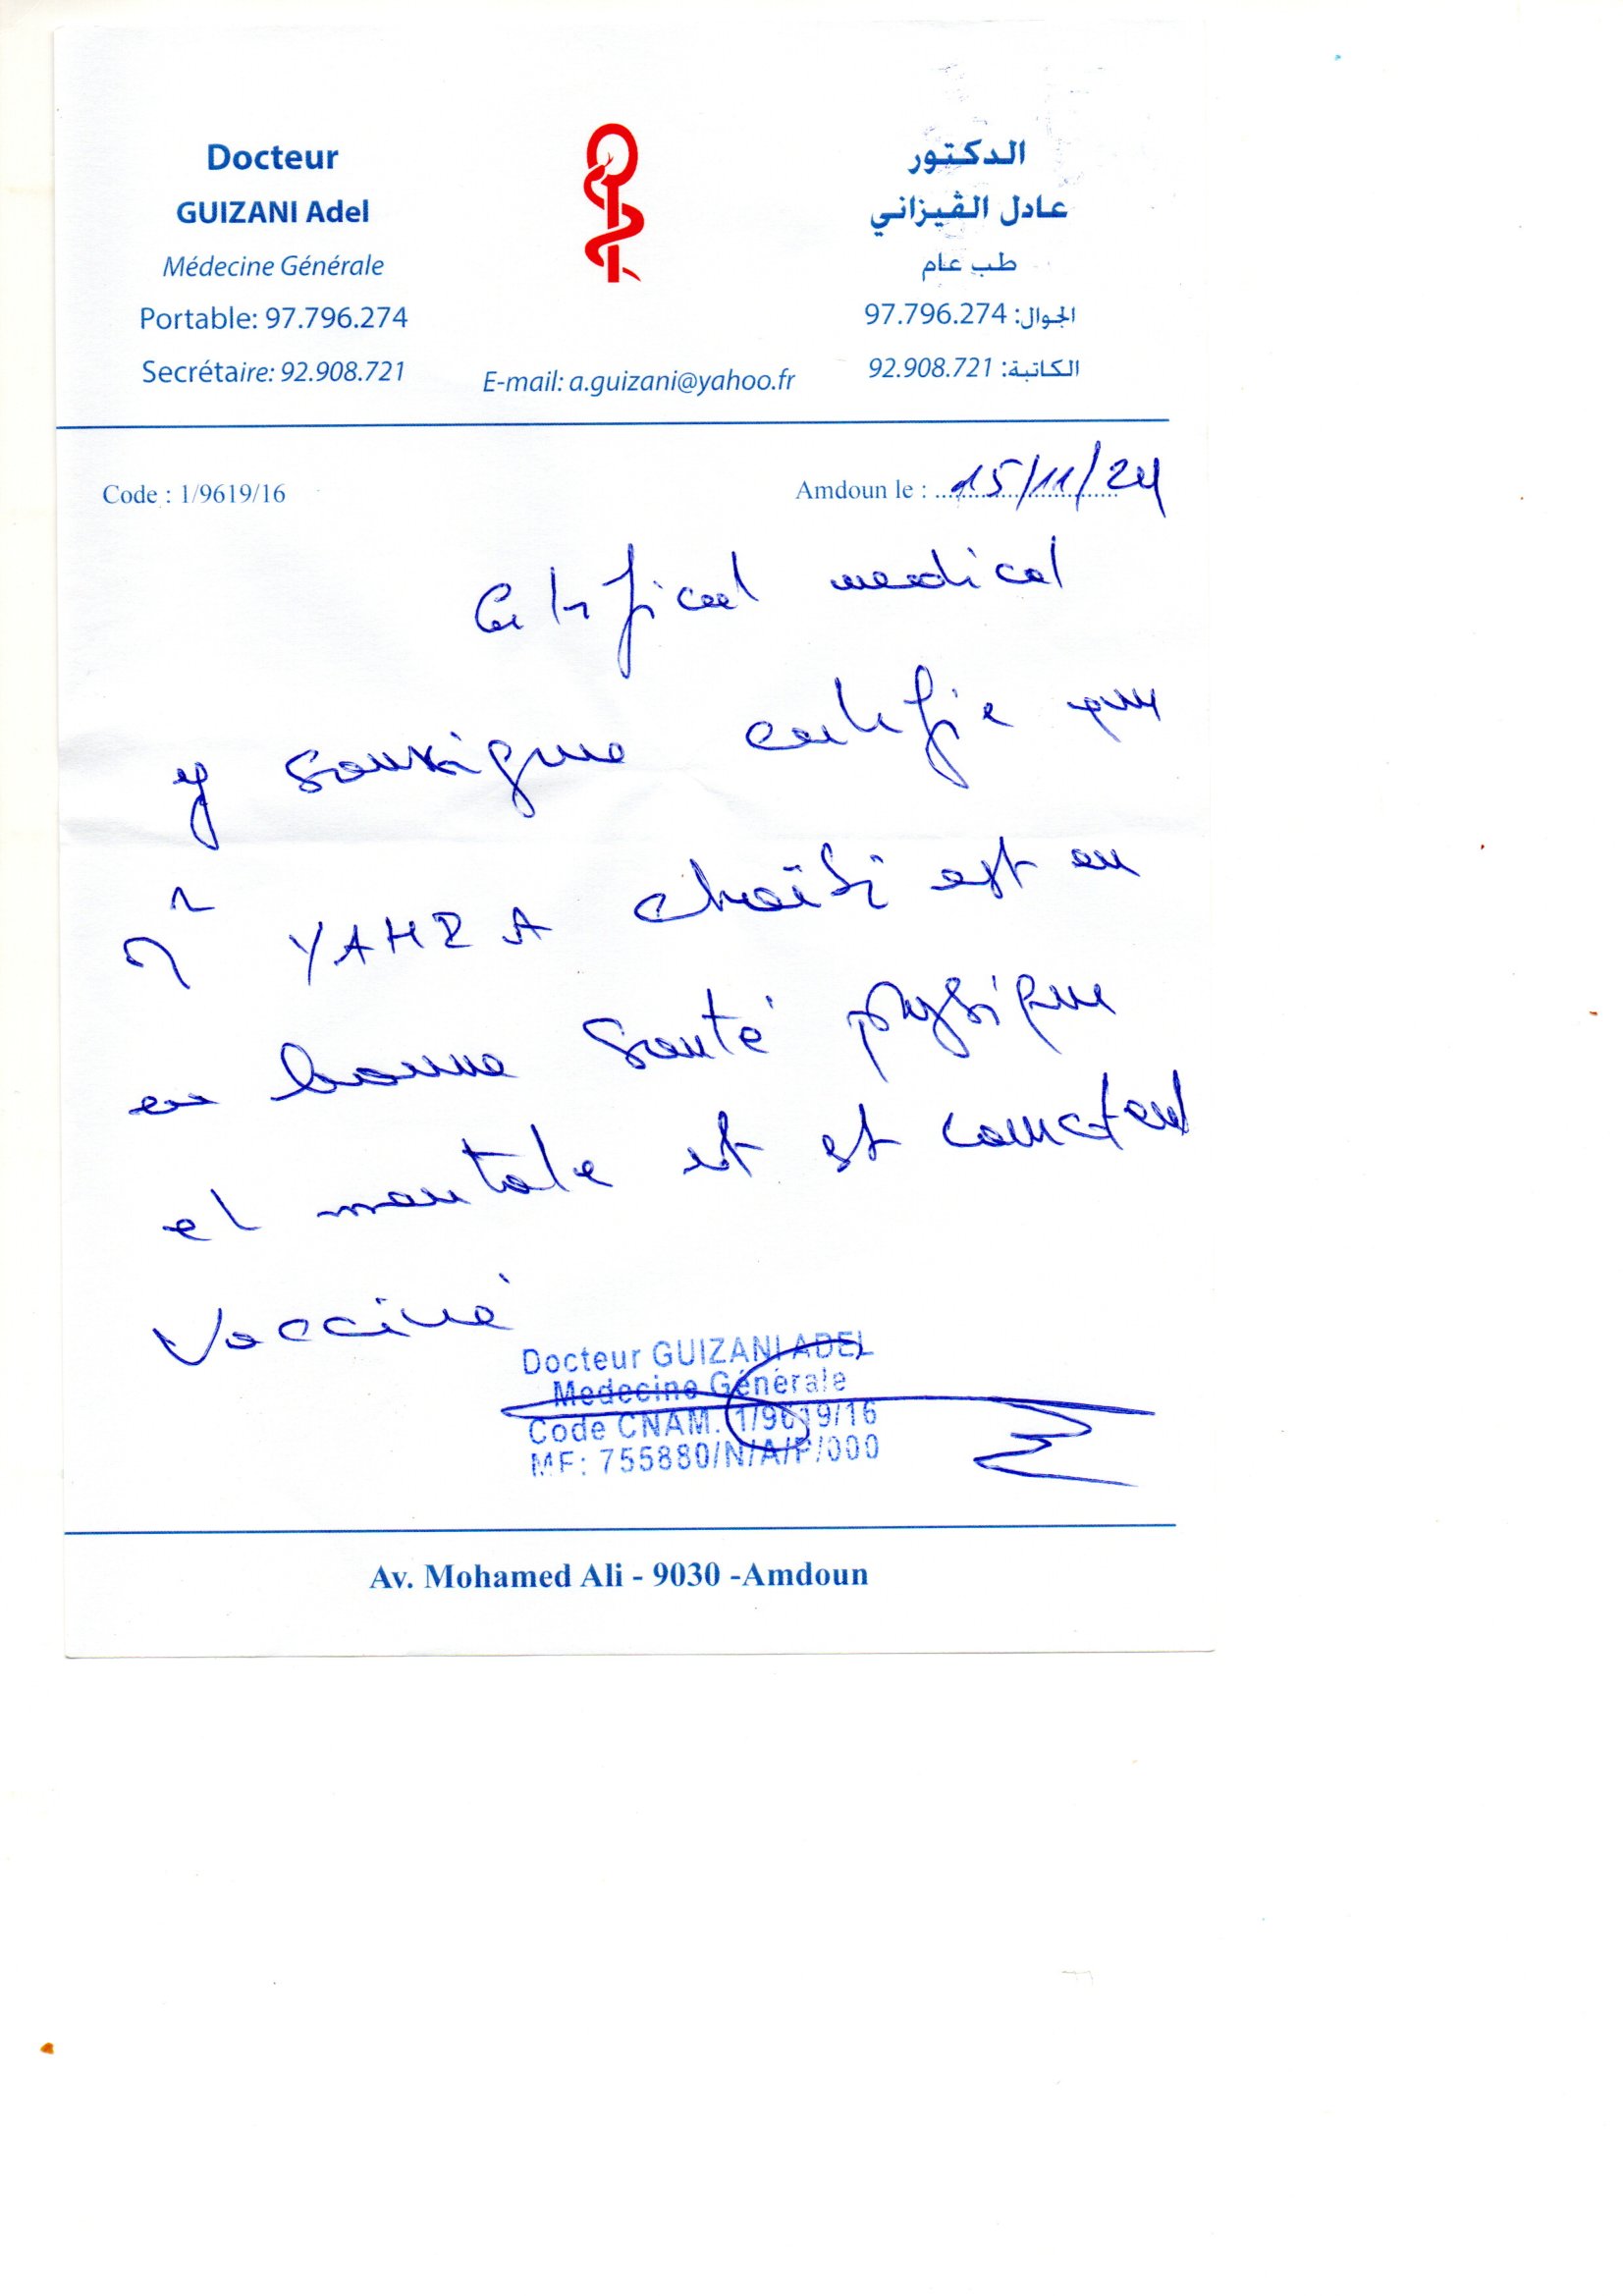 Docteur
GUIZANI Adel
Médecine Générale
Portable: 97.796.274
Secrétaire: 92.908.721
E-mail: a.guizani@yahoo.fr
الدكتور
عادل الڤيزاني
طب عام
الجوال: 97.796.274
الكاتبة: 92.908.721
Code : 1/9619/16
Amdoun le : 15/11/24
Certificat medical
soussigne certifie que
chaïbi est en
en bonne santé physique
et mentale et est
Vacciné
Docteur GUIZANI ADEL
Medecine Générale
Code CNAM. 1/9619/16
MF: 755880/N/A/P/000
Av. Mohamed Ali - 9030 -Amdoun